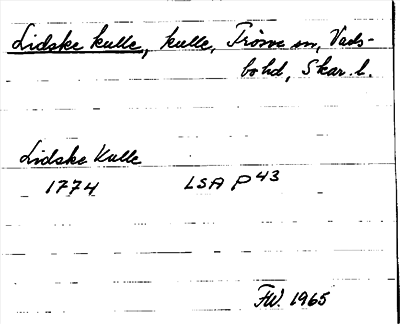 Lidske kulle, kulle, Frösve sn, Vads-
bo hd, Skar. l.
Lidske Kulle
1774 LSA P43
FW. 1965